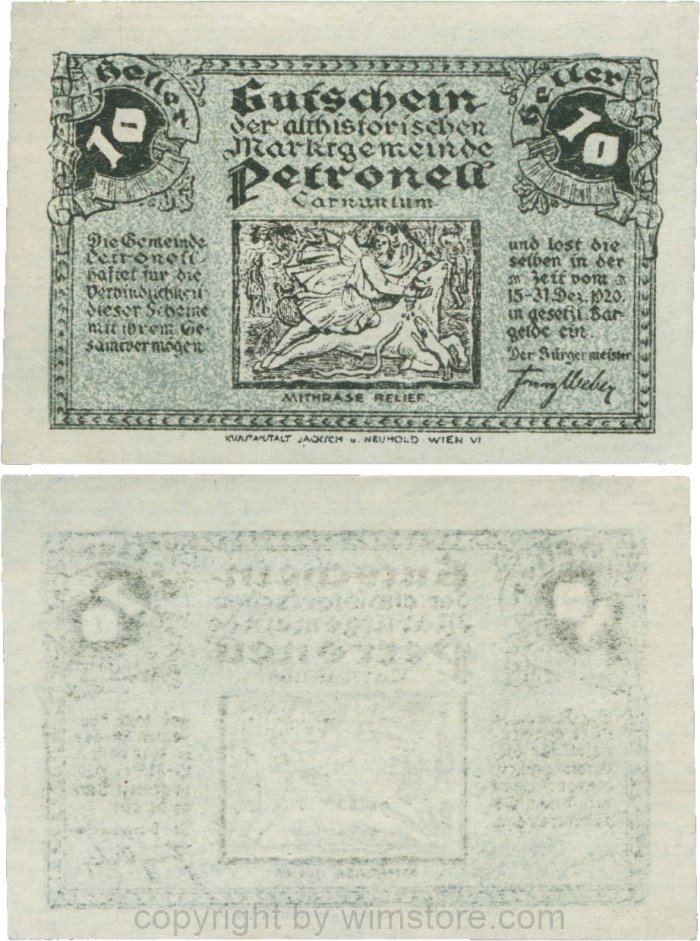 10 Heller
Heller 10
Gutschein
der althistorischen
Marktgemeinde
Petronell
Carnuntum
Die Gemeinde
Petronell
haftet für die
Verbindlichkeit
dieser Scheine
mit ihrem Ge-
samtvermögen
und löst die
selben in der
Zeit vom
15-31. Dez. 1920.
in gesetzl. Bar-
gelde ein.
Der Bürgermeister
Franz Weber
MITHRASE RELIEF.
KUNSTANSTALT JACKSCH u. NEUHOLD WIEN VI
copyright by wimstore.com